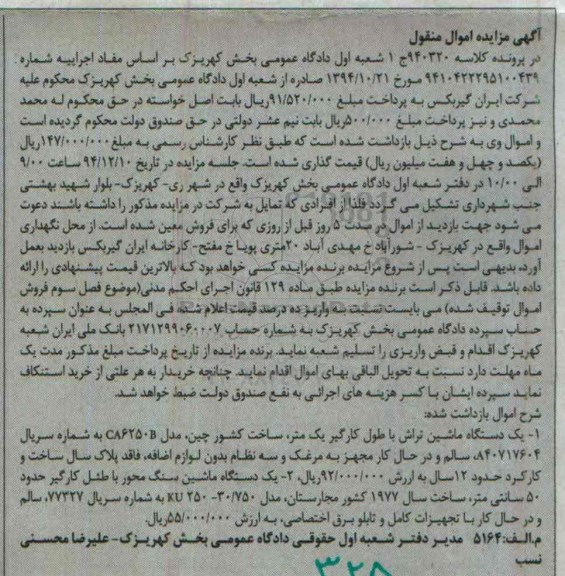 آگهی مزایده اموال منقول
در پرونده کلاسه ۹۴۰۳۲۰ج ۱ شعبه اول دادگاه عمومی بخش کهریزک بر اساس مفاد اجراییه شماره :
۹۴۱۰۴۲۲۲۹۵۱۰۰۴۳۹ مورخ ۱۳۹۴/۱۰/۲۱ صادره از شعبه اول دادگاه عمومی بخش کهریزک محکوم علیه
شرکت ایران گیربکس به پرداخت مبلغ ۹۱/۵۲۰/۰۰۰ریال بابت اصل خواسته در حق محکوم له محمد
محمدی و نیز پرداخت مبلغ ۵۰۰/۰۰۰ریال بابت نیم عشر دولتی در حق صندوق دولت محکوم گردیده است
و اموال وی به شرح ذیل بازداشت شده است که طبق نظر کارشناس رسمی به مبلغ ۱۴۷/۰۰۰/۰۰۰ریال
(یکصد و چهل و هفت میلیون ریال) قیمت گذاری شده است. جلسه مزایده در تاریخ ۹۴/۱۲/۱۰ ساعت ۹/۰۰
الی ۱۰/۰۰ در دفتر شعبه اول دادگاه عمومی بخش کهریزک واقع در شهر ری- کهریزک- بلوار شهید بهشتی
جنب شهرداری تشکیل می گردد فلذا از افرادی که تمایل به شرکت در مزایده مذکور را داشته باشند دعوت
می شود جهت بازدید از اموال در مدت ۵ روز قبل از روزی که برای فروش معین شده است. از محل نگهداری
اموال واقع در کهریزک - شورآباد خ مهدی آباد ۲۰متری پویا خ مفتح- کارخانه ایران گیربکس بازدید بعمل
آورد، بدیهی است پس از شروع مزایده برنده مزایده کسی خواهد بود که بالاترین قیمت پیشنهادی را ارائه
داده باشد. قابل ذکر است برنده مزایده طبق ماده ۱۲۹ قانون اجرای احکام مدنی(موضوع فصل سوم فروش
اموال توقیف شده) می بایست نسبت به واریز ده درصد قیمت اعلام شده فی المجلس به عنوان سپرده به
حساب سپرده دادگاه عمومی بخش کهریزک به شماره حساب ۲۱۷۱۲۹۹۰۶۰۰۰۷ بانک ملی ایران شعبه
کهریزک اقدام و قبض واریزی را تسلیم شعبه نماید. برنده مزایده از تاریخ پرداخت مبلغ مذکور مدت یک
ماه مهلت دارد نسبت به تحویل الباقی بهای اموال اقدام نماید. چنانچه خریدار به هر علتی از خرید استنکاف
نماید سپرده ایشان با کسر هزینه های اجرائی به نفع صندوق دولت ضبط خواهد شد.
شرح اموال بازداشت شده:
۱- یک دستگاه ماشین تراش با طول کارگیر یک متر، ساخت کشور چین، مدل CA۶۲۵۰B به شماره سریال
۸۴۰۷۱۷۶۰۴، سالم و در حال کار مجهز به مرغک و سه نظام بدون لوازم اضافه، فاقد پلاک سال ساخت و
کارکرد حدود ۱۲سال به ارزش ۹۲/۰۰۰/۰۰۰ریال، ۲- یک دستگاه ماشین سنگ محور با طئل کارگیر حدود
۵۰ سانتی متر، ساخت سال ۱۹۷۷ کشور مجارستان، مدل KU ۲۵۰ -۳۰/۷۵۰ به شماره سریال ۷۷۳۲۷، سالم
و در حال کار با تجهیزات کامل و تابلو برق اختصاصی، به ارزش ۵۵/۰۰۰/۰۰۰ریال.
م.الف:۵۱۶۴ مدیر دفتر شعبه اول حقوقی دادگاه عمومی بخش کهریزک- علیرضا محسنی
نسب
۳۲۸